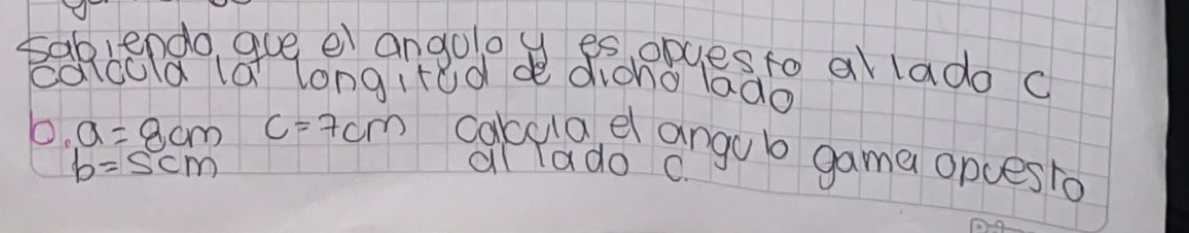 sabiendo que el angulo y es opuesto al lado c
calcula la longitud de dicho lado
b. a=8cm c=7cm calcula el angulo gama opuesto
b=5cm al lado c.